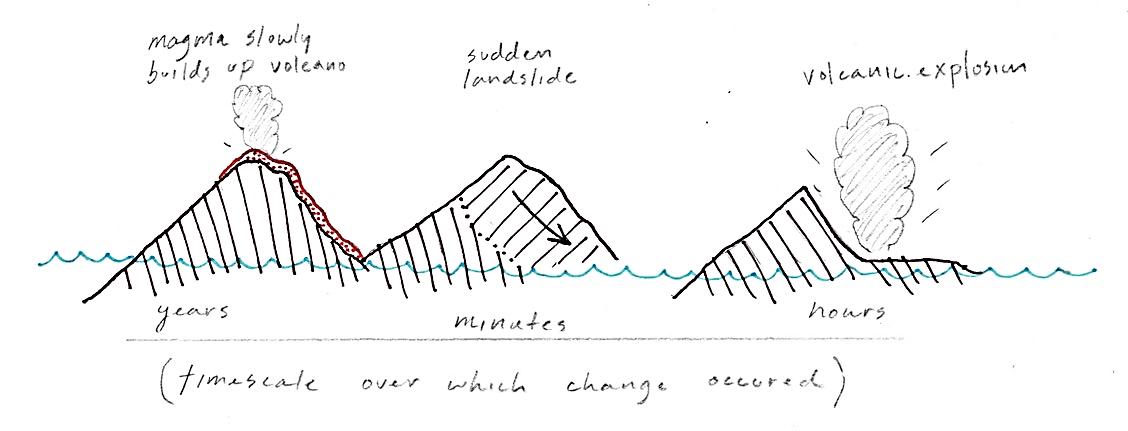 magma slowly
builds up volcano
sudden
landslide
volcanic explosion
years
minutes
hours
(timescale over which change occured)